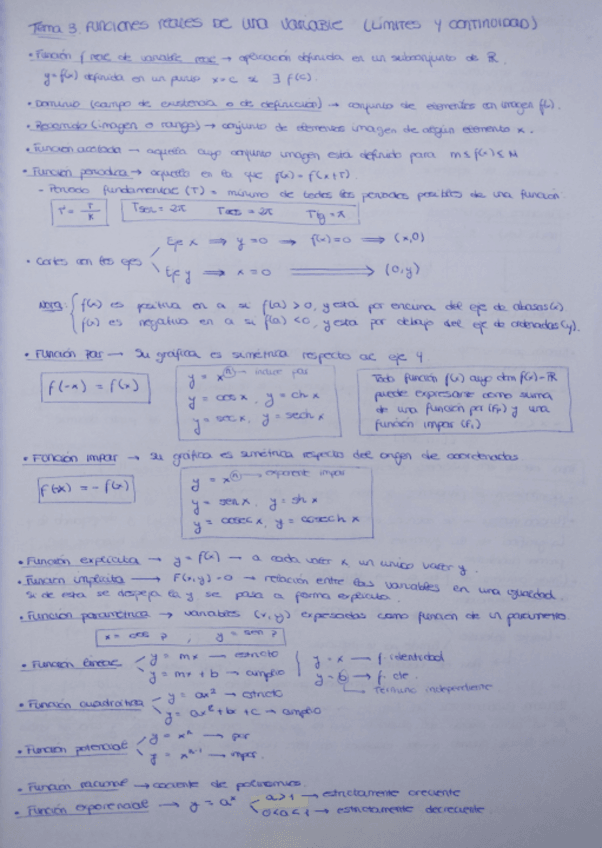 Tema 3. FUNCIONES REALES DE UNA VARIABLE (LÍMITES Y CONTINUIDAD)
• Función f real de variable real → aplicación definida en un subconjunto de ℝ.
y = f(x) definida en un punto x=c si ∃ f(c).
• Dominio (campo de existencia o de definición) → conjunto de elementos con imagen f(x).
• Recorrido (imagen o rango) → conjunto de elementos imagen de algún elemento x.
• Función acotada → aquella cuyo conjunto imagen está definido para m ≤ f(x) ≤ M
• Función periódica → aquella en la que f(x) = f(x+T).
- Periodo fundamental (T) = mínimo de todos los periodos posibles de una función.
T' = T/K Tsec = 2π Tcos = 2π Ttg = π
• Cortes con los ejes
Eje x ⇒ y=0 → f(x)=0 ⇒ (x,0)
Eje y ⇒ x=0 ⇒ (0,y)
NOTA: f(x) es positiva en a si f(a) > 0, y está por encima del eje de abcisas(x)
f(x) es negativa en a si f(a) < 0, y está por debajo del eje de ordenadas(y).
• Función Par → Su gráfica es simétrica respecto al eje y
f(-x) = f(x)
y = xⁿ → índice par
y = cos x, y = ch x
y = sec x, y = sech x
Toda función f(x) cuyo dom f(x)=ℝ
puede expresarse como suma
de una función par (Fp) y una
función impar (Fi)
• Función impar → Su gráfica es simétrica respecto del origen de coordenadas
f(-x) = -f(x)
y = xⁿ → exponente impar
y = sen x, y = sh x
y = cosec x, y = cosech x
• Función explícita → y = f(x) → a cada valor x un único valor y.
• Función implícita → F(x,y)=0 → relación entre las variables en una igualdad.
Si de esta se despeja la y se pasa a forma explícita.
• Función paramétrica → variables (x,y) expresadas como función de un parámetro.
x = cos ? , y = sen ?
• Función lineal
y = mx → estricto
y = mx + b → amplio
y = x → f. identidad
y = b → f. cte.
Término independiente
• Función cuadrática
y = ax² → estricto
y = ax² + bx + c → amplio
• Función potencial
y = xⁿ → par
y = xⁿ⁻¹ → impar.
• Función racional → cociente de polinomios.
• Función exponencial → y = aˣ
a>1 → estrictamente creciente
0<a<1 → estrictamente decreciente